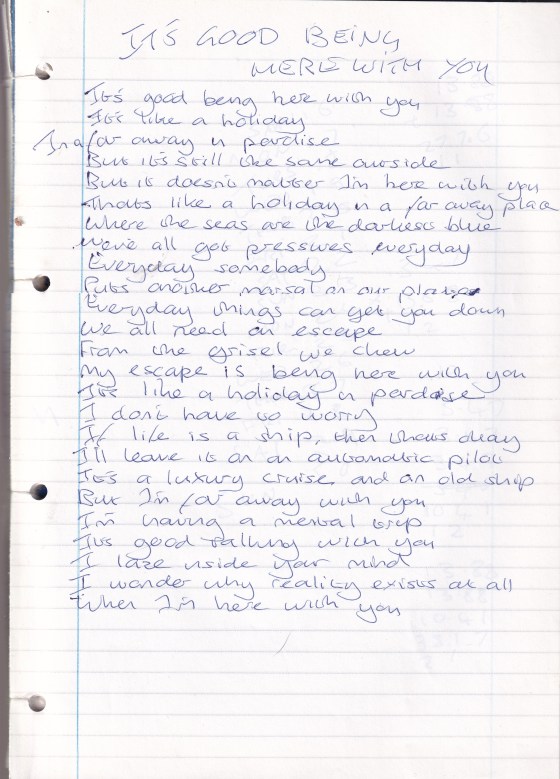 IT'S GOOD BEING
HERE WITH YOU
It's good being here with you
It's like a holiday
In a far away in pardise
But it's still the same outside
But it doesn't matter I'm here with you
thats like a holiday in a far away place
where the seas are the darkest blue
We've all got pressures everyday
Everyday somebody
Puts another marsal on our plate
Everyday things can get you down
We all need an escape
From the grisel we chew
My escape is being here with you
It's like a holiday in pardise
I don't have to worry
If life is a ship, then thats okay
I'll leave it on an automatic pilot
It's a luxury cruise and an old ship
But I'm far away with you
I'm having a mental trip
It's good talking with you
I laze inside your mind
I wonder why reality exists at all
When I'm here with you